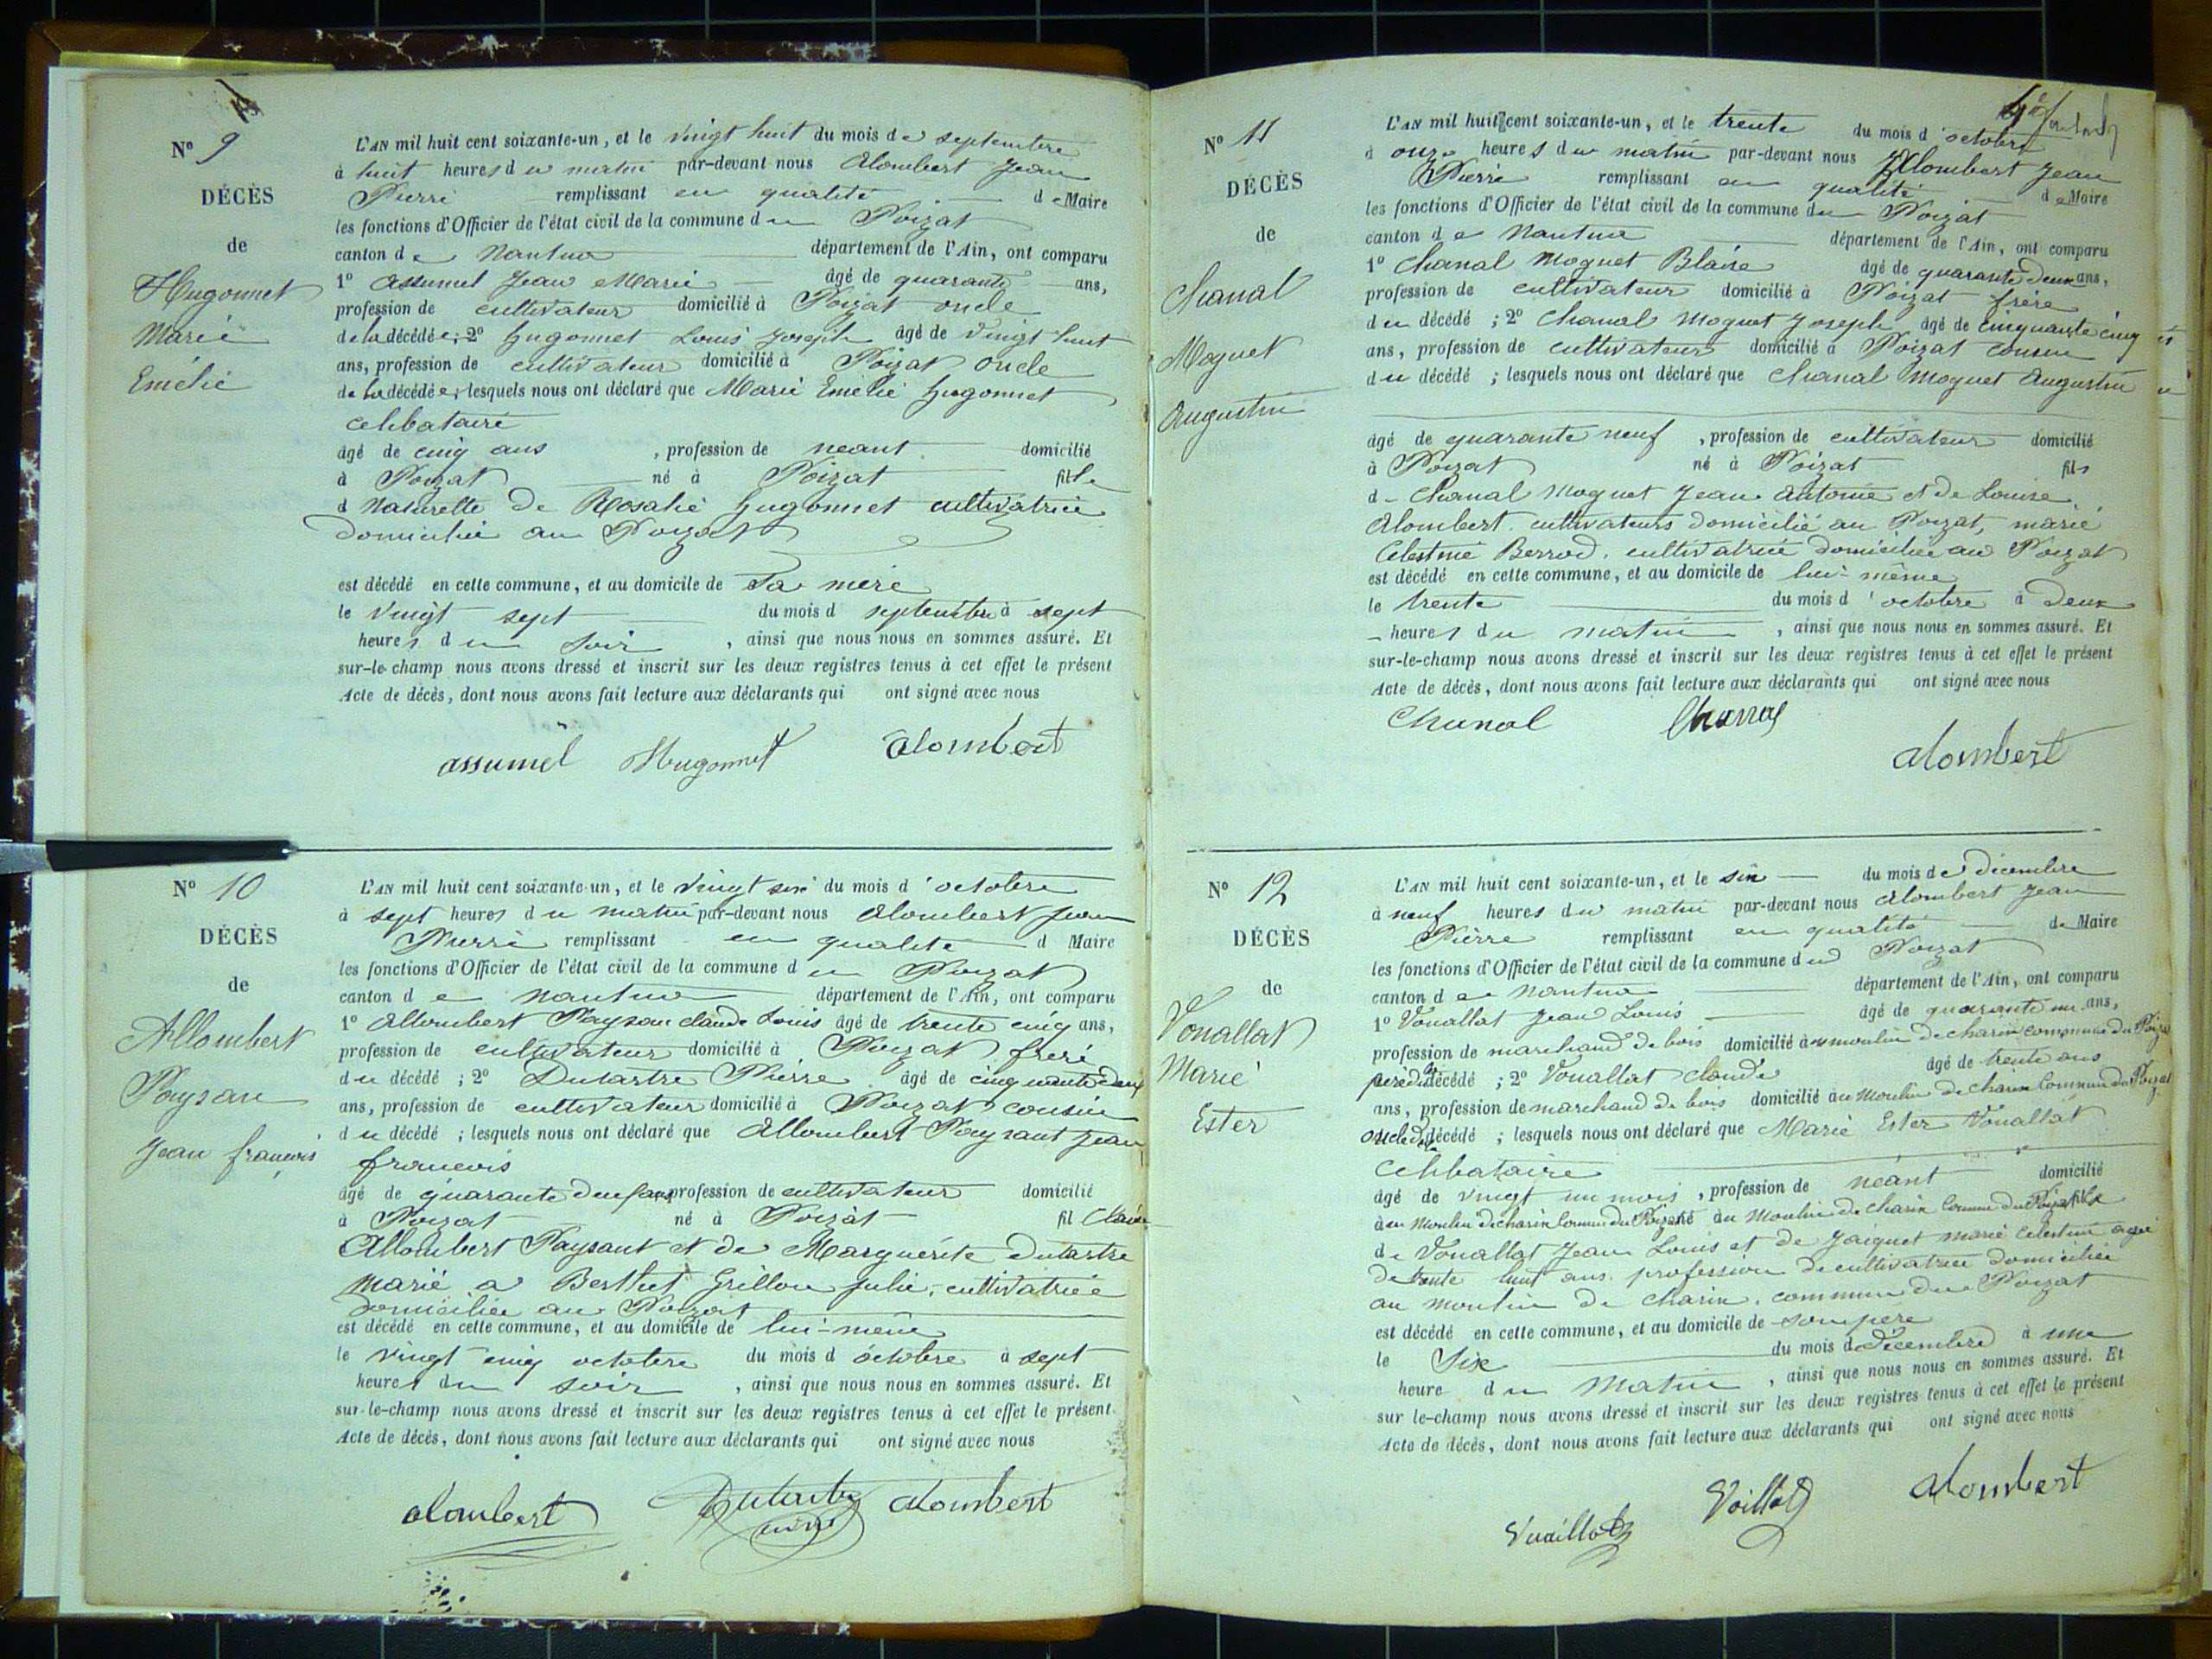 N° 9
DÉCÈS
de
Hugonnet
Marie
Emélie
L'AN mil huit cent soixante-un, et le vingt huit du mois de septembre
à huit heures du matin par-devant nous Alombert Jean
Pierre remplissant en qualité de Maire
les fonctions d'Officier de l'état civil de la commune du Poizat
canton de Nantua département de l'Ain, ont comparu
1° Assumel Jean Marie âgé de quarante ans,
profession de cultivateur domicilié à Poizat oncle
de la décédée; 2° hugonnet Louis Joseph âgé de vingt huit
ans, profession de cultivateur domicilié à Poizat oncle
de la décédée; lesquels nous ont déclaré que Marie Emélie hugonnet
celibataire
âgé de cinq ans , profession de neant domicilié
à Poizat né à Poizat fille
d naturelle de Rosalie hugonnet cultivatrice
domiciliée au Poizat
est décédé en cette commune, et au domicile de sa mère
le vingt sept du mois d septembre à sept
heures du soir , ainsi que nous nous en sommes assuré. Et
sur-le-champ nous avons dressé et inscrit sur les deux registres tenus à cet effet le présent
Acte de décès, dont nous avons fait lecture aux déclarants qui ont signé avec nous
assumel Hugonnet alombert
N° 10
DÉCÈS
de
Allombert
Paysan
Jean françois
L'AN mil huit cent soixante-un, et le vingt six du mois d'octobre
à sept heures du matin par-devant nous Alombert Jean
Pierre remplissant en qualité d Maire
les fonctions d'Officier de l'état civil de la commune du Poizat
canton de Nantua département de l'Ain, ont comparu
1° Allombert Paysan claude Louis âgé de trente cinq ans,
profession de cultivateur domicilié à Poizat frère
du décédé ; 2° Dutartre Pierre âgé de cinquante deux
ans, profession de cultivateur domicilié à Poizat cousin
du décédé ; lesquels nous ont déclaré que Allombert Paysant Jean
francois
âgé de quarante deux ans profession de cultivateur domicilié
à Poizat né à Poizat fil
Allombert Paysant et de Marguérite Dutartre
marié a Berthet Grillon julie, cultivatrice
domiciliée au Poizat
est décédé en cette commune, et au domicile de lui-même
le vingt cinq octobre du mois d octobre à sept
heures du soir , ainsi que nous nous en sommes assuré. Et
sur-le-champ nous avons dressé et inscrit sur les deux registres tenus à cet effet le présent
Acte de décès, dont nous avons fait lecture aux déclarants qui ont signé avec nous
alombert Dutartre alombert
N° 11
DÉCÈS
de
Chanal
Moguet
Augustin
L'AN mil huit cent soixante-un, et le trente du mois d'octobre
à onze heures du matin par-devant nous Alombert Jean
Pierre remplissant en qualité de Maire
les fonctions d'Officier de l'état civil de la commune du Poizat
canton de Nantua département de l'Ain, ont comparu
1° Chanal Moguet Blaise âgé de quarante deux ans,
profession de cultivateur domicilié à Poizat frère
du décédé ; 2° Chanal Moguet Joseph âgé de cinquante cinq
ans, profession de cultivateur domicilié à Poizat cousin
du décédé ; lesquels nous ont déclaré que Chanal Moguet Augustin
âgé de quarante neuf , profession de cultivateur domicilié
à Poizat né à Poizat fils
d Chanal Moguet Jean Antoine et de Louise
Alombert cultivateurs domicilié au Poizat, marié
Celestine Berrod, cultivatrice domiciliée au Poizat
est décédé en cette commune, et au domicile de lui-même
le trente du mois d'octobre à deux
heures du matin , ainsi que nous nous en sommes assuré. Et
sur-le-champ nous avons dressé et inscrit sur les deux registres tenus à cet effet le présent
Acte de décès, dont nous avons fait lecture aux déclarants qui ont signé avec nous
Chanal Chanal
alombert
N° 12
DÉCÈS
de
Vouallat
Marie
Ester
L'AN mil huit cent soixante-un, et le six du mois de décembre
à neuf heures du matin par-devant nous Alombert Jean
Pierre remplissant en qualité de Maire
les fonctions d'Officier de l'état civil de la commune du Poizat
canton de Nantua département de l'Ain, ont comparu
1° Vouallat Jean Louis âgé de quarante un ans,
profession de marchand de bois domicilié à au moulin de charix commune du Poizat
père de décédé ; 2° Vouallat claude âgé de trente ans
ans, profession de marchand de bois domicilié au Moulin de charix Commune du Poizat
oncle de décédé ; lesquels nous ont déclaré que Marie Ester Vouallat
celibataire
âgé de vingt un mois , profession de néant domicilié
à au Moulin de charix Comune du Poizat né au Moulin de charix Comune du Poizat fille
de Vouallat Jean Louis et de Jaiquet marie celestine agée
de trente huit ans, profession de cultivatrice domiciliée
au moulin de charix, commune du Poizat
est décédé en cette commune, et au domicile de son père
le Six du mois de décembre à une
heure du Matin , ainsi que nous nous en sommes assuré. Et
sur le-champ nous avons dressé et inscrit sur les deux registres tenus à cet effet le présent
Acte de décès, dont nous avons fait lecture aux déclarants qui ont signé avec nous
Vuaillat Voillat alombert